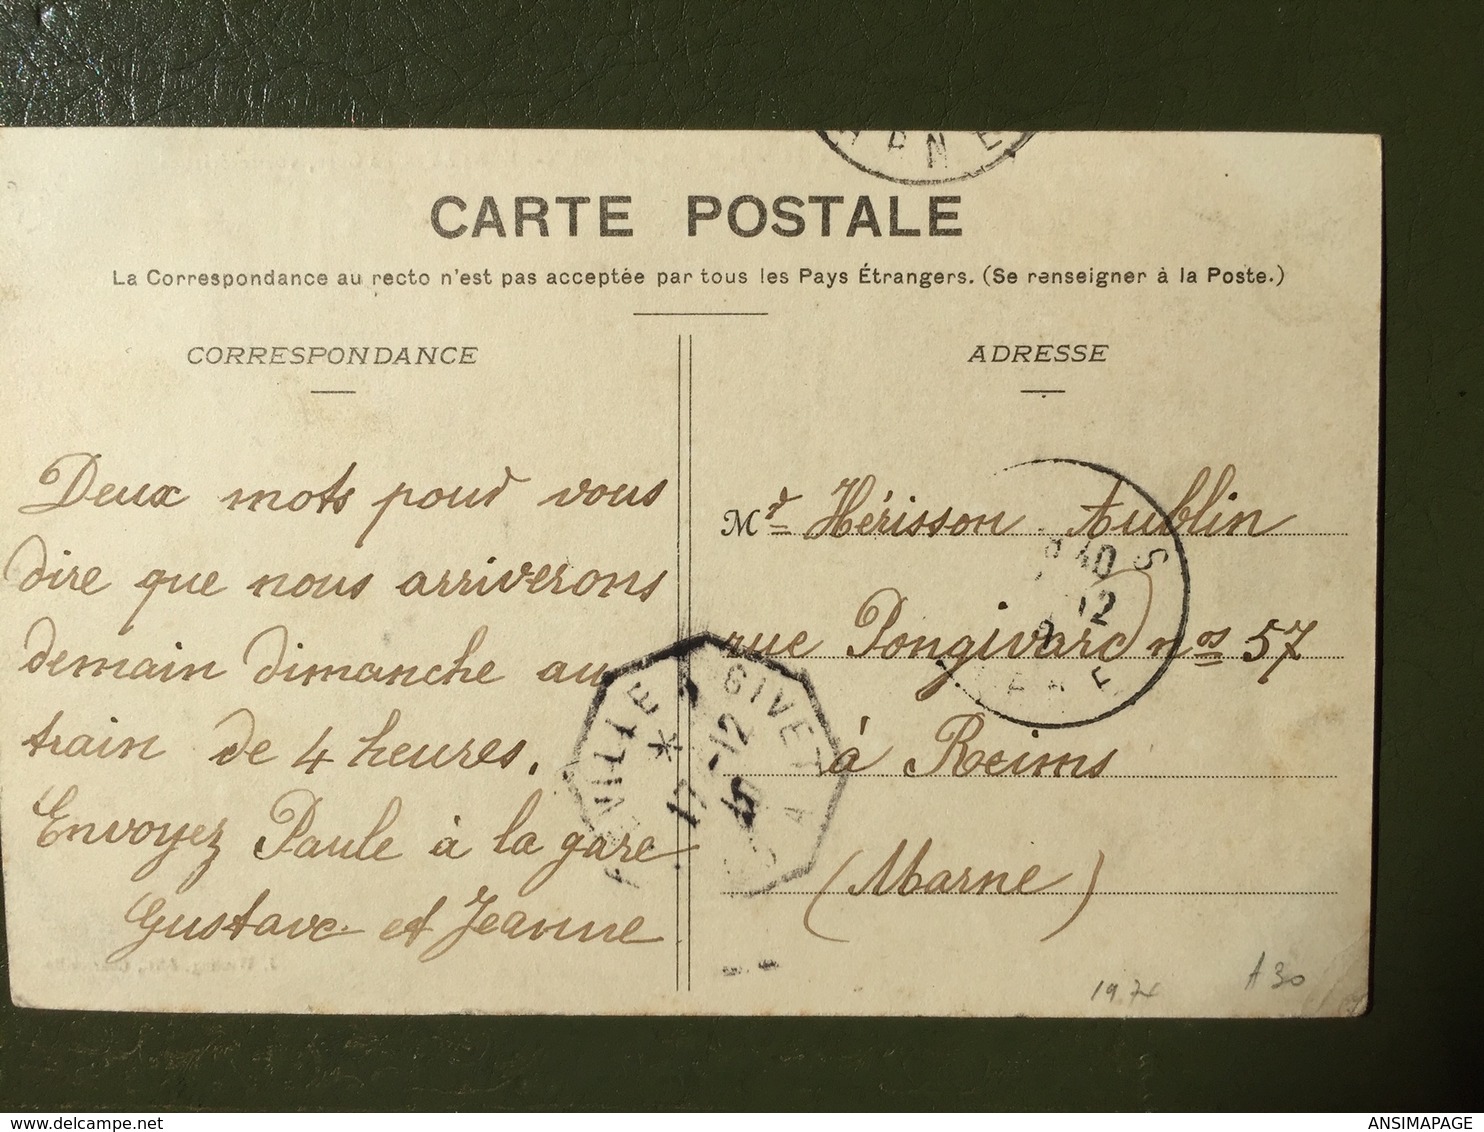 ARNE
CARTE POSTALE
La Correspondance au recto n'est pas acceptée par tous les Pays Étrangers. (Se renseigner à la Poste.)
CORRESPONDANCE
Deux mots pour vous
dire que nous arriverons
demain dimanche au
train de 4 heures.
Envoyez Paule à la gare
Gustave et Jeanne
ADRESSE
Mr Hérisson Aublin
rue Pongivard nos 57
à Reims
(Marne)
40
12
S
VILLE
GIVET A
17 -12
10
1974
A30
delcampe.net
ANSIMAPAGE